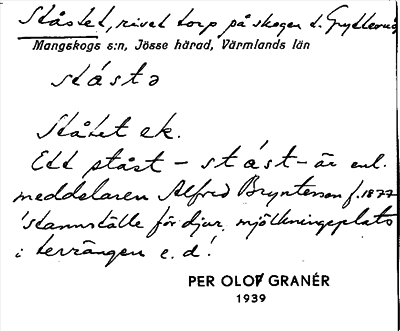 Ståstet, rivet torp på skogen t. Grytterud
Mangskogs s:n, Jösse härad, Värmlands län
ståstə
Ståtet ek.
Ett ståst – stást – är enl.
meddelaren Alfred Bryntesson f. 1877
'stannställe för djur, mjölkningsplats
i terrängen e.d.'
PER OLOF GRANÉR
1939